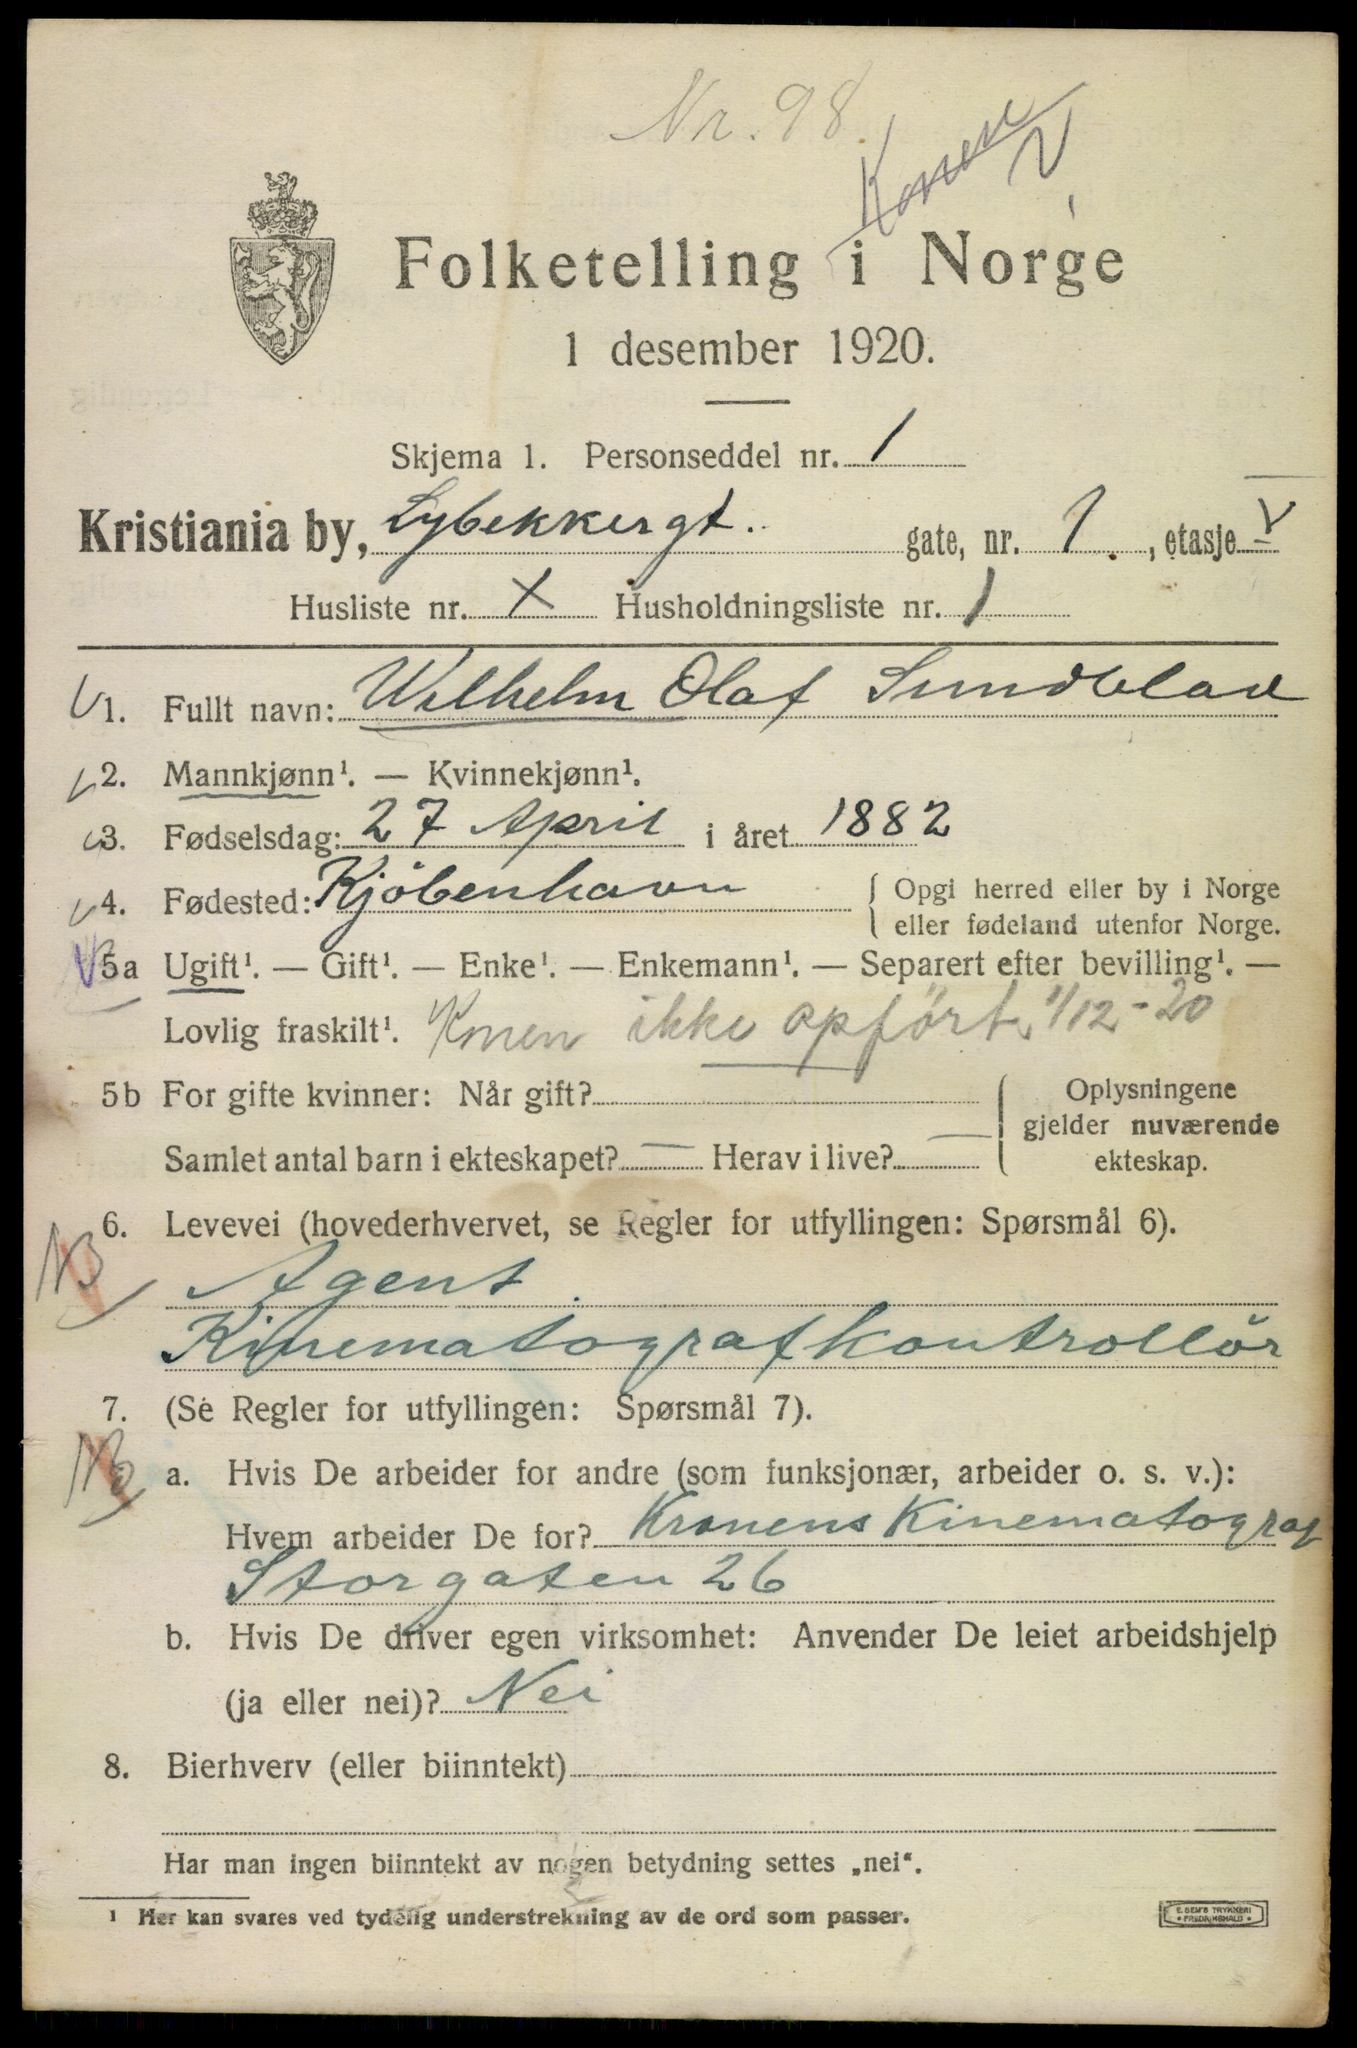 Nr. 98.
Konen
Folketelling i Norge
1 desember 1920.
Skjema 1. Personseddel nr. 1
Kristiania by, Lybekkergt. gate, nr. 1, etasje V
Husliste nr. X Husholdningsliste nr. 1
1. Fullt navn: Wilhelm Olaf Sundblad
2. Mannkjønn¹. — Kvinnekjønn¹.
3. Fødselsdag: 27 April i året 1882
4. Fødested: Kjöbenhavn { Opgi herred eller by i Norge
eller fødeland utenfor Norge.
5a Ugift¹. — Gift¹. — Enke¹. — Enkemann¹. — Separert efter bevilling¹. —
Lovlig fraskilt¹. Konen ikke opført 1/12-20
5b For gifte kvinner: Når gift? { Oplysningene
gjelder nuværende
Samlet antal barn i ekteskapet? — Herav i live? — ekteskap.
6. Levevei (hovederhvervet, se Regler for utfyllingen: Spørsmål 6).
NB
Agent
Kinematografkontrollör
7. (Se Regler for utfyllingen: Spørsmål 7).
NB a. Hvis De arbeider for andre (som funksjonær, arbeider o. s. v.):
Hvem arbeider De for? Kronens Kinematograf
Storgaten 26
b. Hvis De driver egen virksomhet: Anvender De leiet arbeidshjelp
(ja eller nei)? Nei
8. Bierhverv (eller biinntekt)
Har man ingen biinntekt av nogen betydning settes „nei“.
¹ Her kan svares ved tydelig understrekning av de ord som passer.
E. SEM'S TRYKKERI
• FREDRIKSHALD •